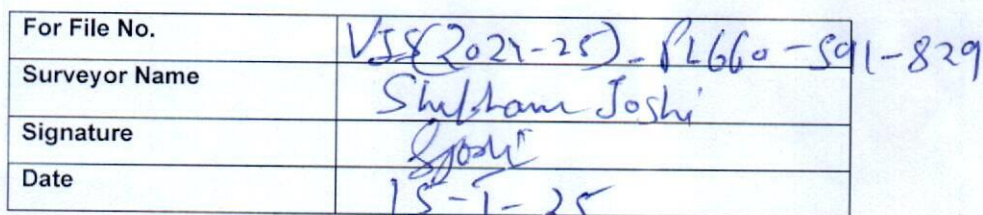 For File No. VIS(2024-25)-PL660-591-829
Surveyor Name Shubham Joshi
Signature SJoshi
Date 15-1-25